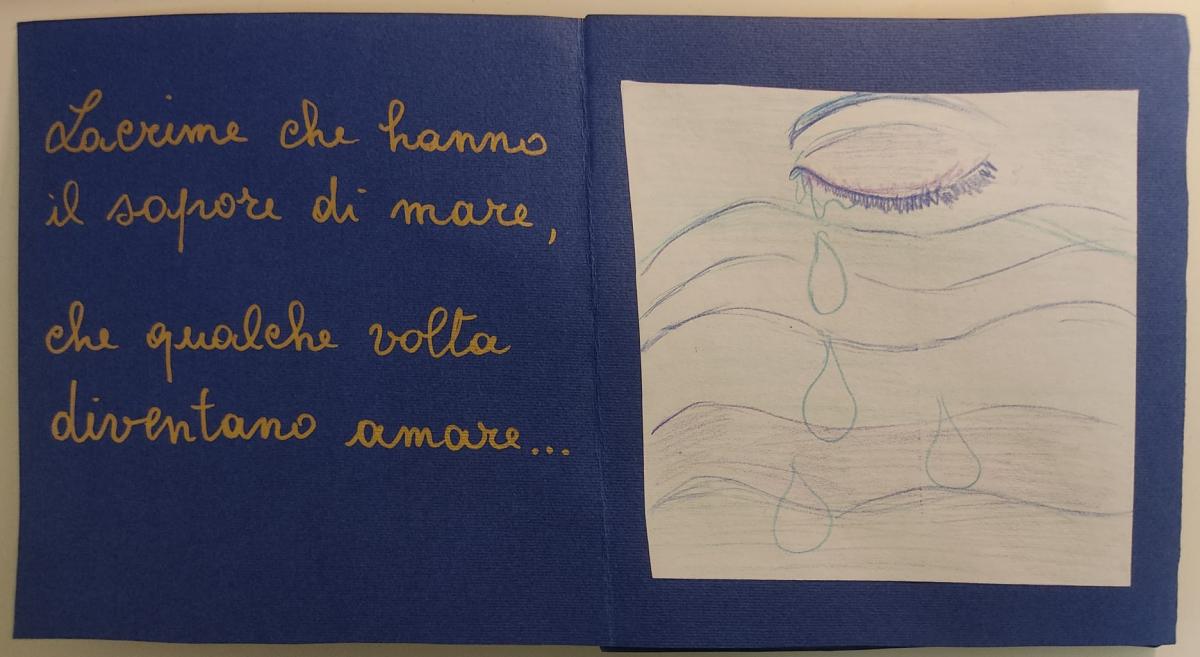 Lacrime che hanno
il sapore di mare,
che qualche volta
diventano amare...